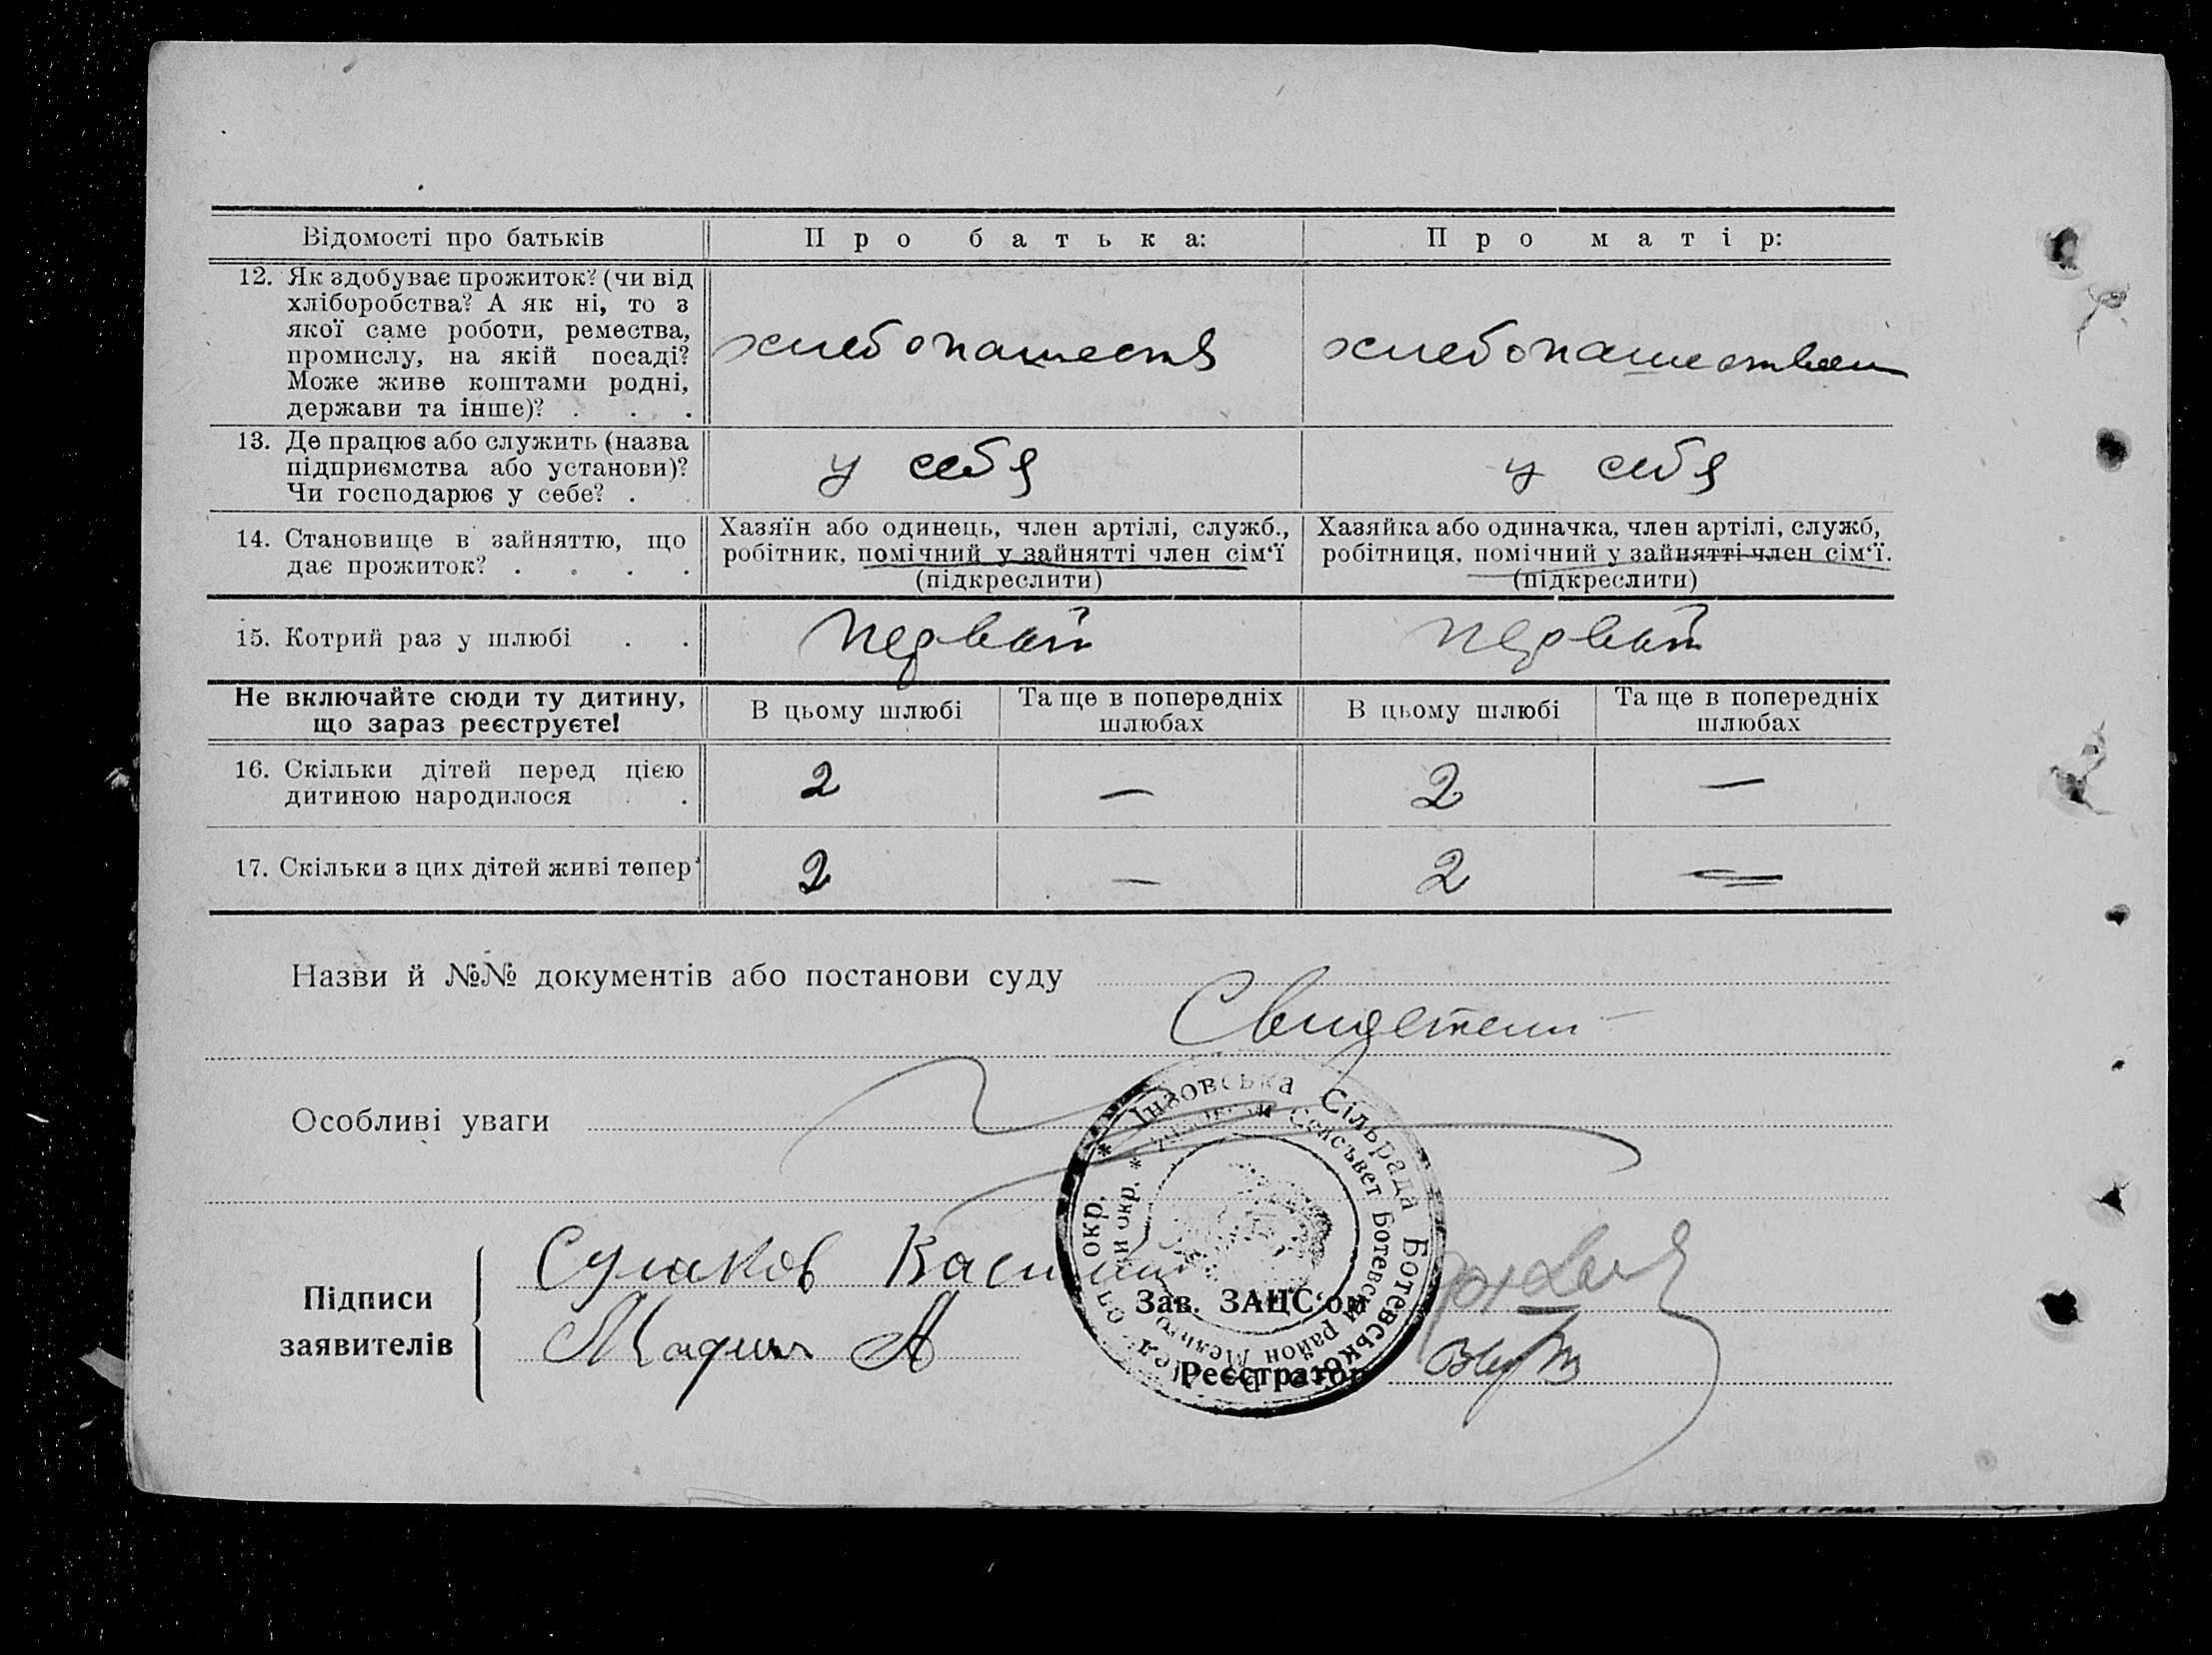 Відомості про батьків
Про батька:
Про матір:
12. Як здобуває прожиток? (чи від
хліборобства? А як ні, то з
якої саме роботи, ремества,
промислу, на якій посаді?
Може живе коштами родні,
держави та інше)? . . .
хлебопашеств
хлебопашеством
13. Де працює або служить (назва
підприємства або установи)?
Чи господарює у себе? .
у себя
у себя
14. Становище в зайняттю, що
дає прожиток? . . . .
Хазяїн або одинець, член артілі, служб.,
робітник, помічний у зайнятті член сім‘ї
(підкреслити)
Хазяйка або одиначка, член артілі, служб,
робітниця, помічний у зайнятті член сім‘ї.
(підкреслити)
15. Котрий раз у шлюбі . .
первый
первый
Не включайте сюди ту дитину,
що зараз реєструєте!
В цьому шлюбі
Та ще в попередніх
шлюбах
В цьому шлюбі
Та ще в попередніх
шлюбах
16. Скільки дітей перед цією
дитиною народилося .
2 — 2 —
17. Скільки з цих дітей живі тепер
2 — 2 —
Назви й №№ документів або постанови суду
Свидетели
Особливі уваги
Інзовська Сільрада Ботевського
Сельсъвет Ботевски район
окр.
Підписи
заявителів
Сулаков
А
Зав. ЗАЦС‘ом
Реєстратор